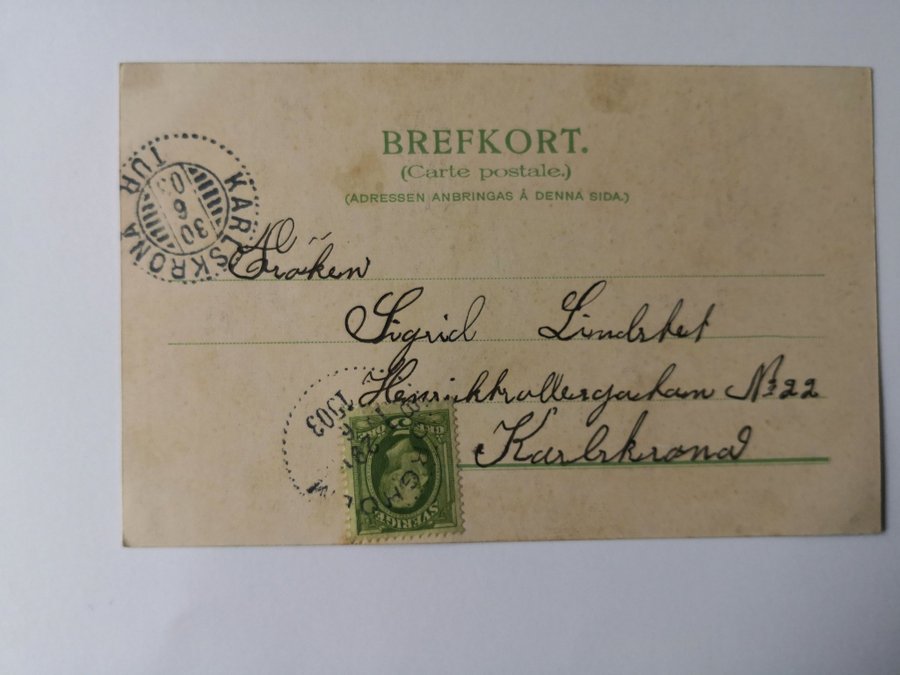 BREFKORT.
(Carte postale.)
(ADRESSEN ANBRINGAS Å DENNA SIDA.)
KARLSKRONA
TUR
30
6
03
Fröken
Sigrid Lindstet
No 22
Karlskrona
1903
SVERIGE